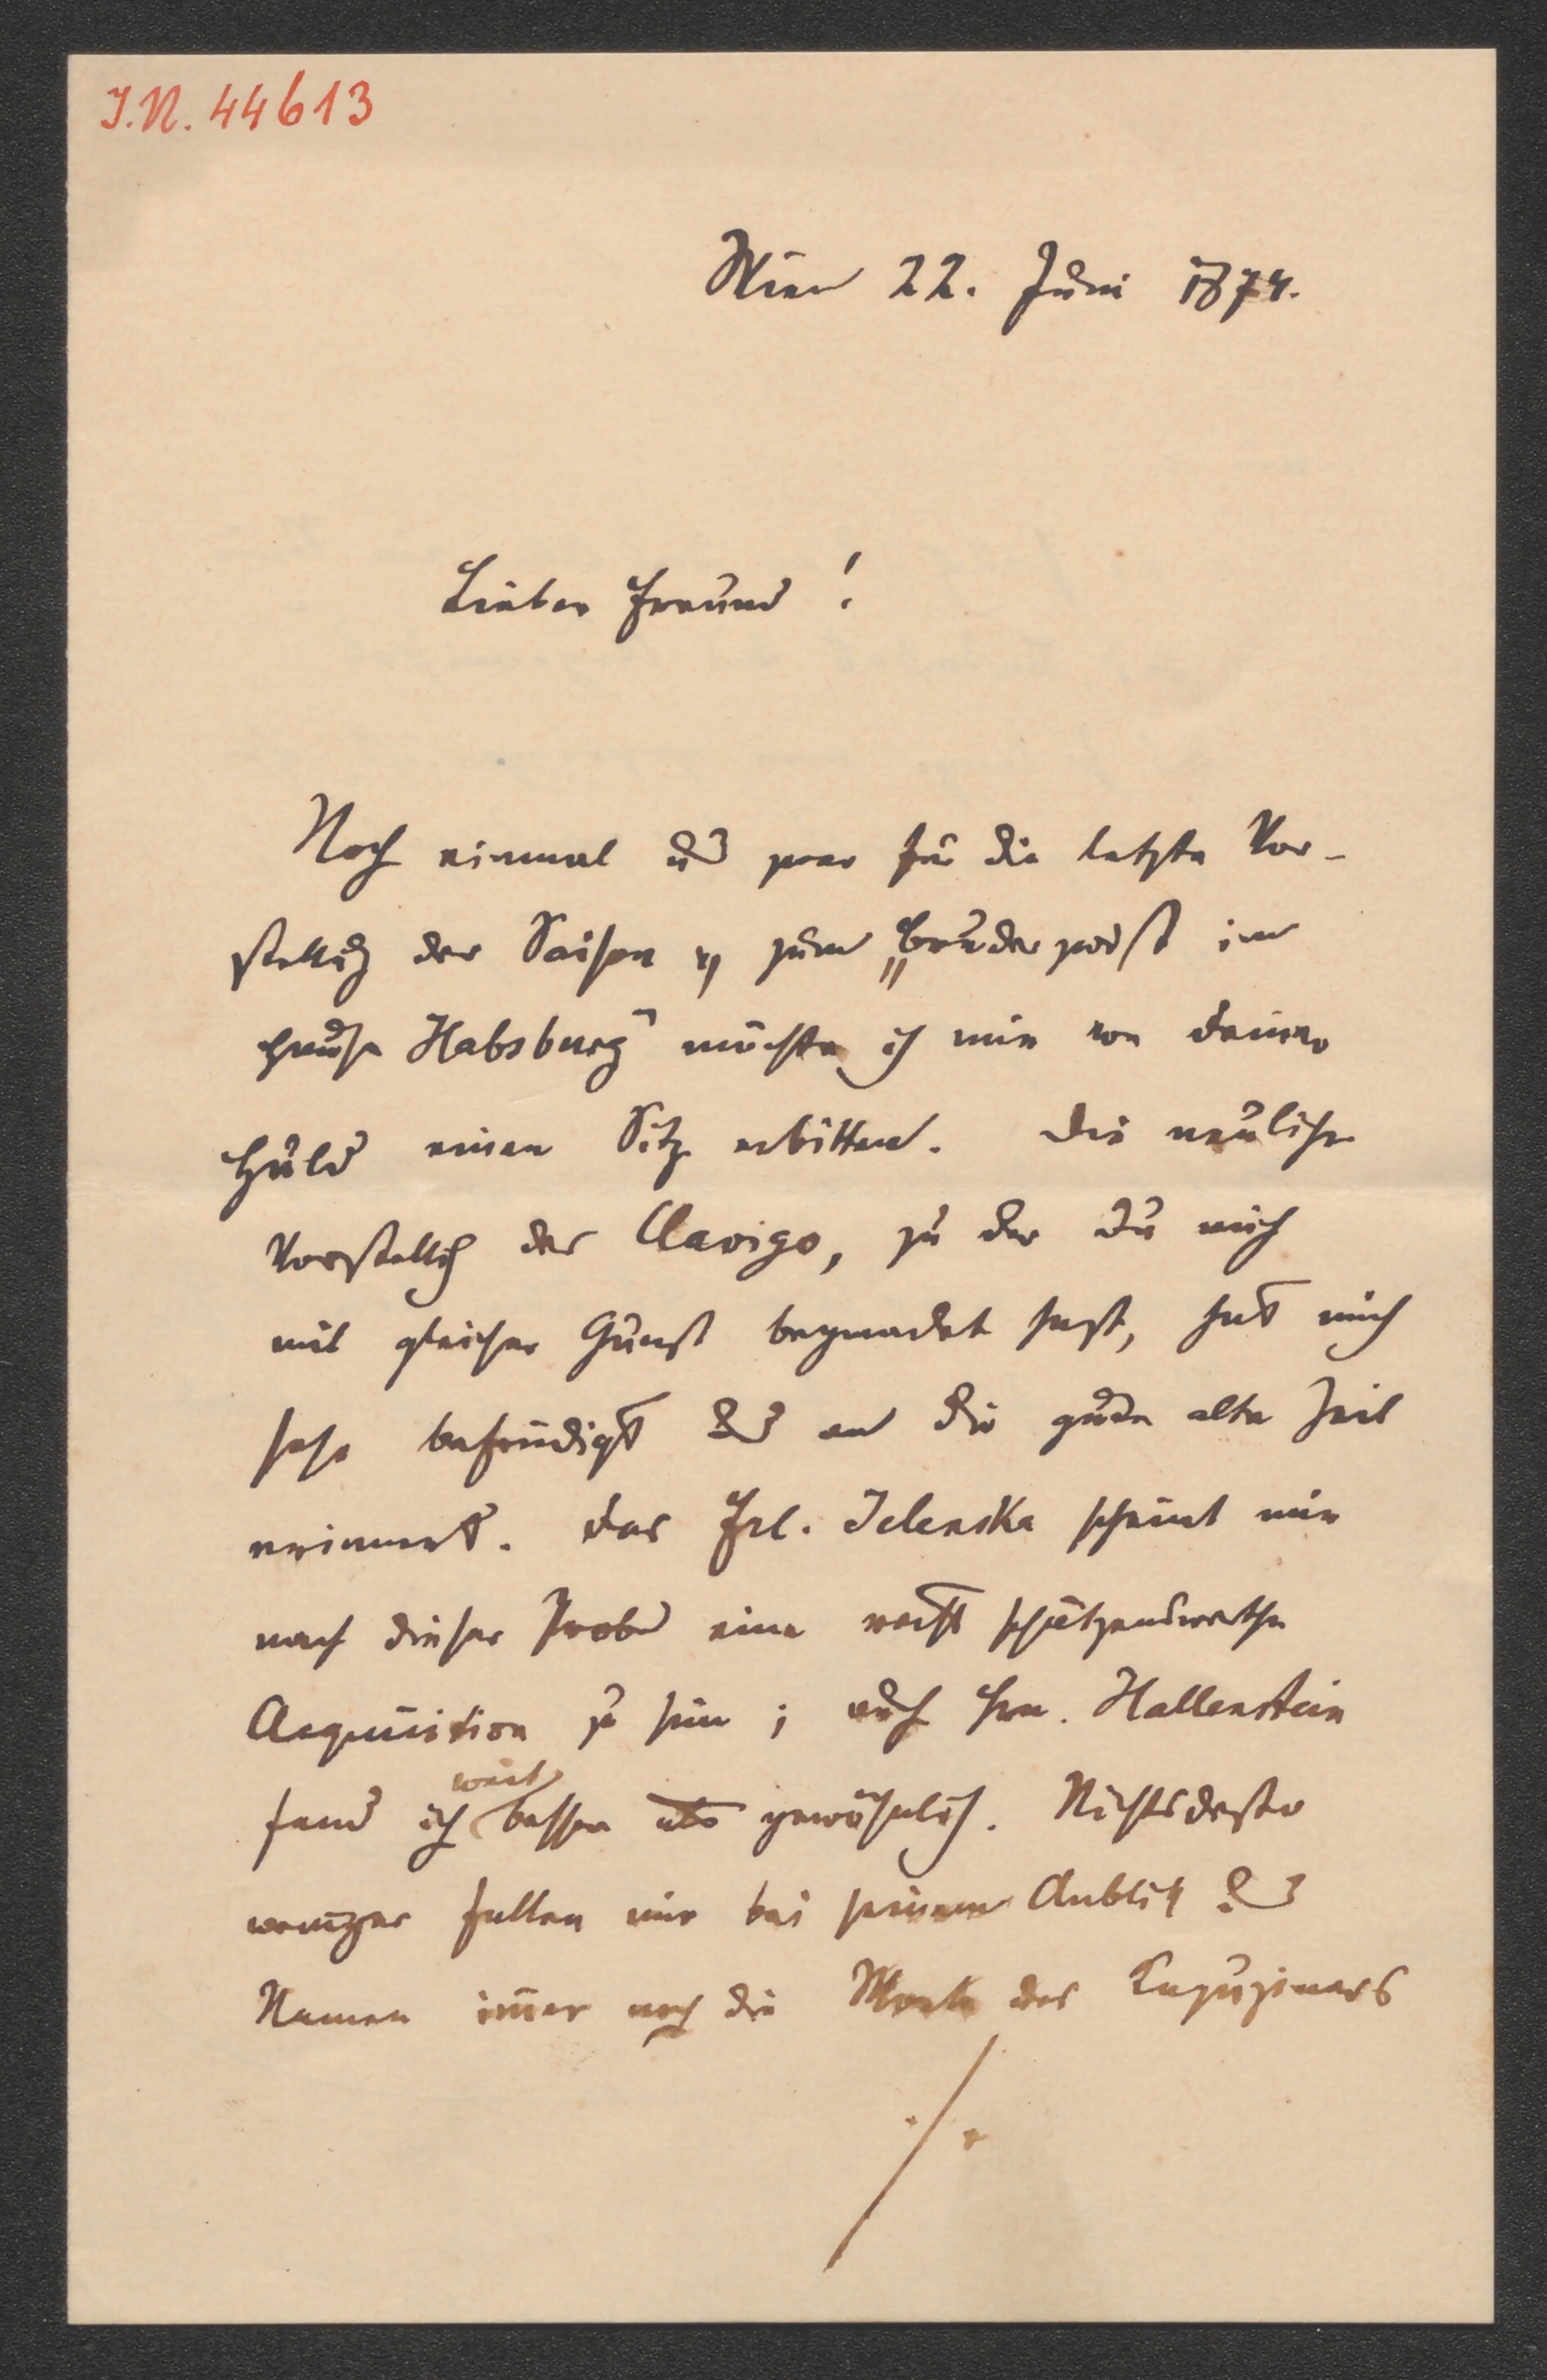 I.N. 44613
Wien 22. Juni 1874.
Lieber Freund!
Noch einmal und zwar für die letzte Vor-
stellung der Saison, zum „Bruderzwist im
Hause Habsburg“ möchte ich mir von Deiner
Huld einen Sitz erbitten. Die neuliche
Vorstellung des Clavigo, zu der Du mich
mit gleicher Gunst begnadet hast, hat mich
sehr befriedigt und an die gute alte Zeit
erinnert. Das Frl. Jelenska scheint mir
nach dieser Probe eine recht schätzenswerthe
Acquisition zu sein; auch Hrn. Hallenstein
fand ich weit besser als gewöhnlich. Nichtsdesto
weniger fallen mir bei seinem Anblick und
Namen immer noch die Worte des Kapuziners
./.